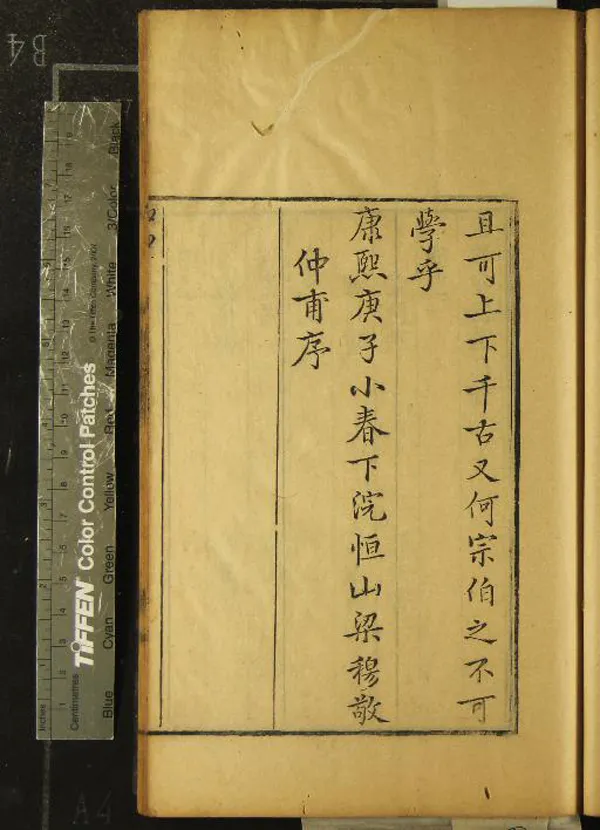 且可上下千古又何宗伯之不可
學乎
康熙庚子小春下浣恒山梁穆敬
仲甫序
TIFFEN® Color Control Patches
© The Tiffen Company, 2007
Inches
Centimetres
Blue Cyan Green Yellow Red Magenta White 3/Color Black
B4
A4